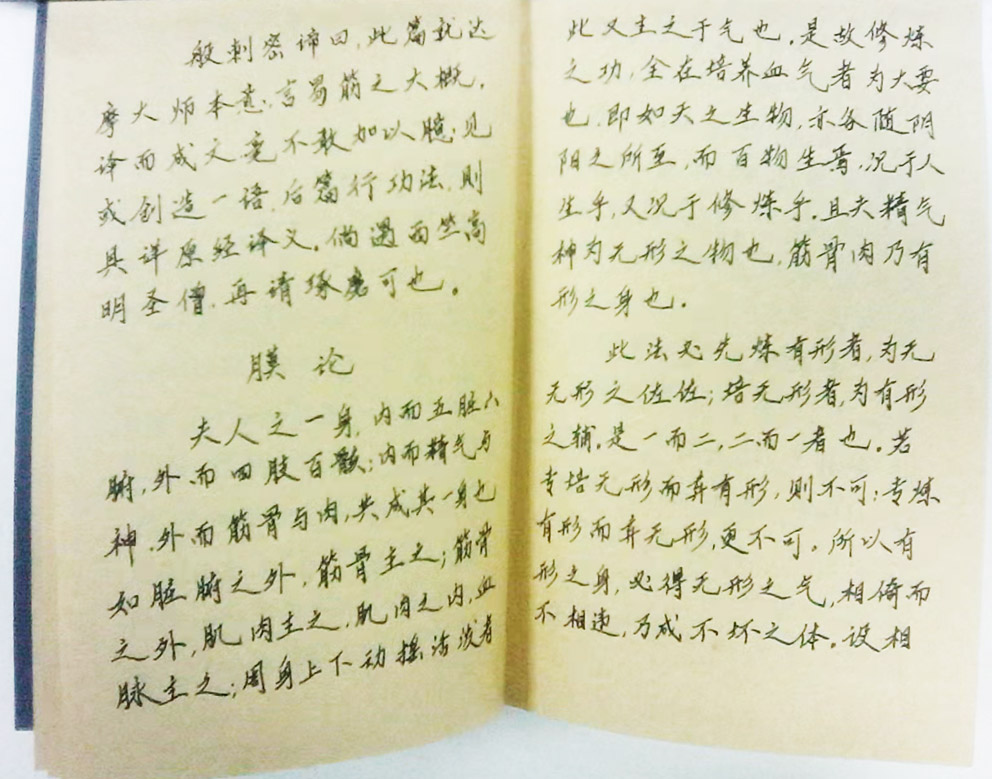 般刺密谛曰，此篇就达
摩大师本意，言易筋之大概，
译而成文，毫不敢加以臆见
或创造一语，后篇行功法，则
具详原经译义。倘遇西竺高
明圣僧，再请琢磨可也。
膜 论
夫人之一身，内而五脏六
腑，外而四肢百骸；内而精气与
神，外而筋骨与肉，共成其一身也
如脏腑之外，筋骨主之；筋骨
之外，肌肉主之，肌肉之内，血
脉主之；周身上下动摇活泼者
此又主之于气也，是故修炼
之功，全在培养血气者为大要
也，即如天之生物，亦各随阴
阳之所至，而百物生焉，况于人
生乎，又况于修炼乎。且夫精气
神为无形之物也，筋骨肉乃有
形之身也。
此法必先炼有形者，为无
无形之佐佐；培无形者，为有形
之辅。是一而二，二而一者也。若
专培无形而弃有形，则不可；专炼
有形而弃无形，更不可。所以有
形之身，必得无形之气，相倚而
不相违，乃成不坏之体。设相